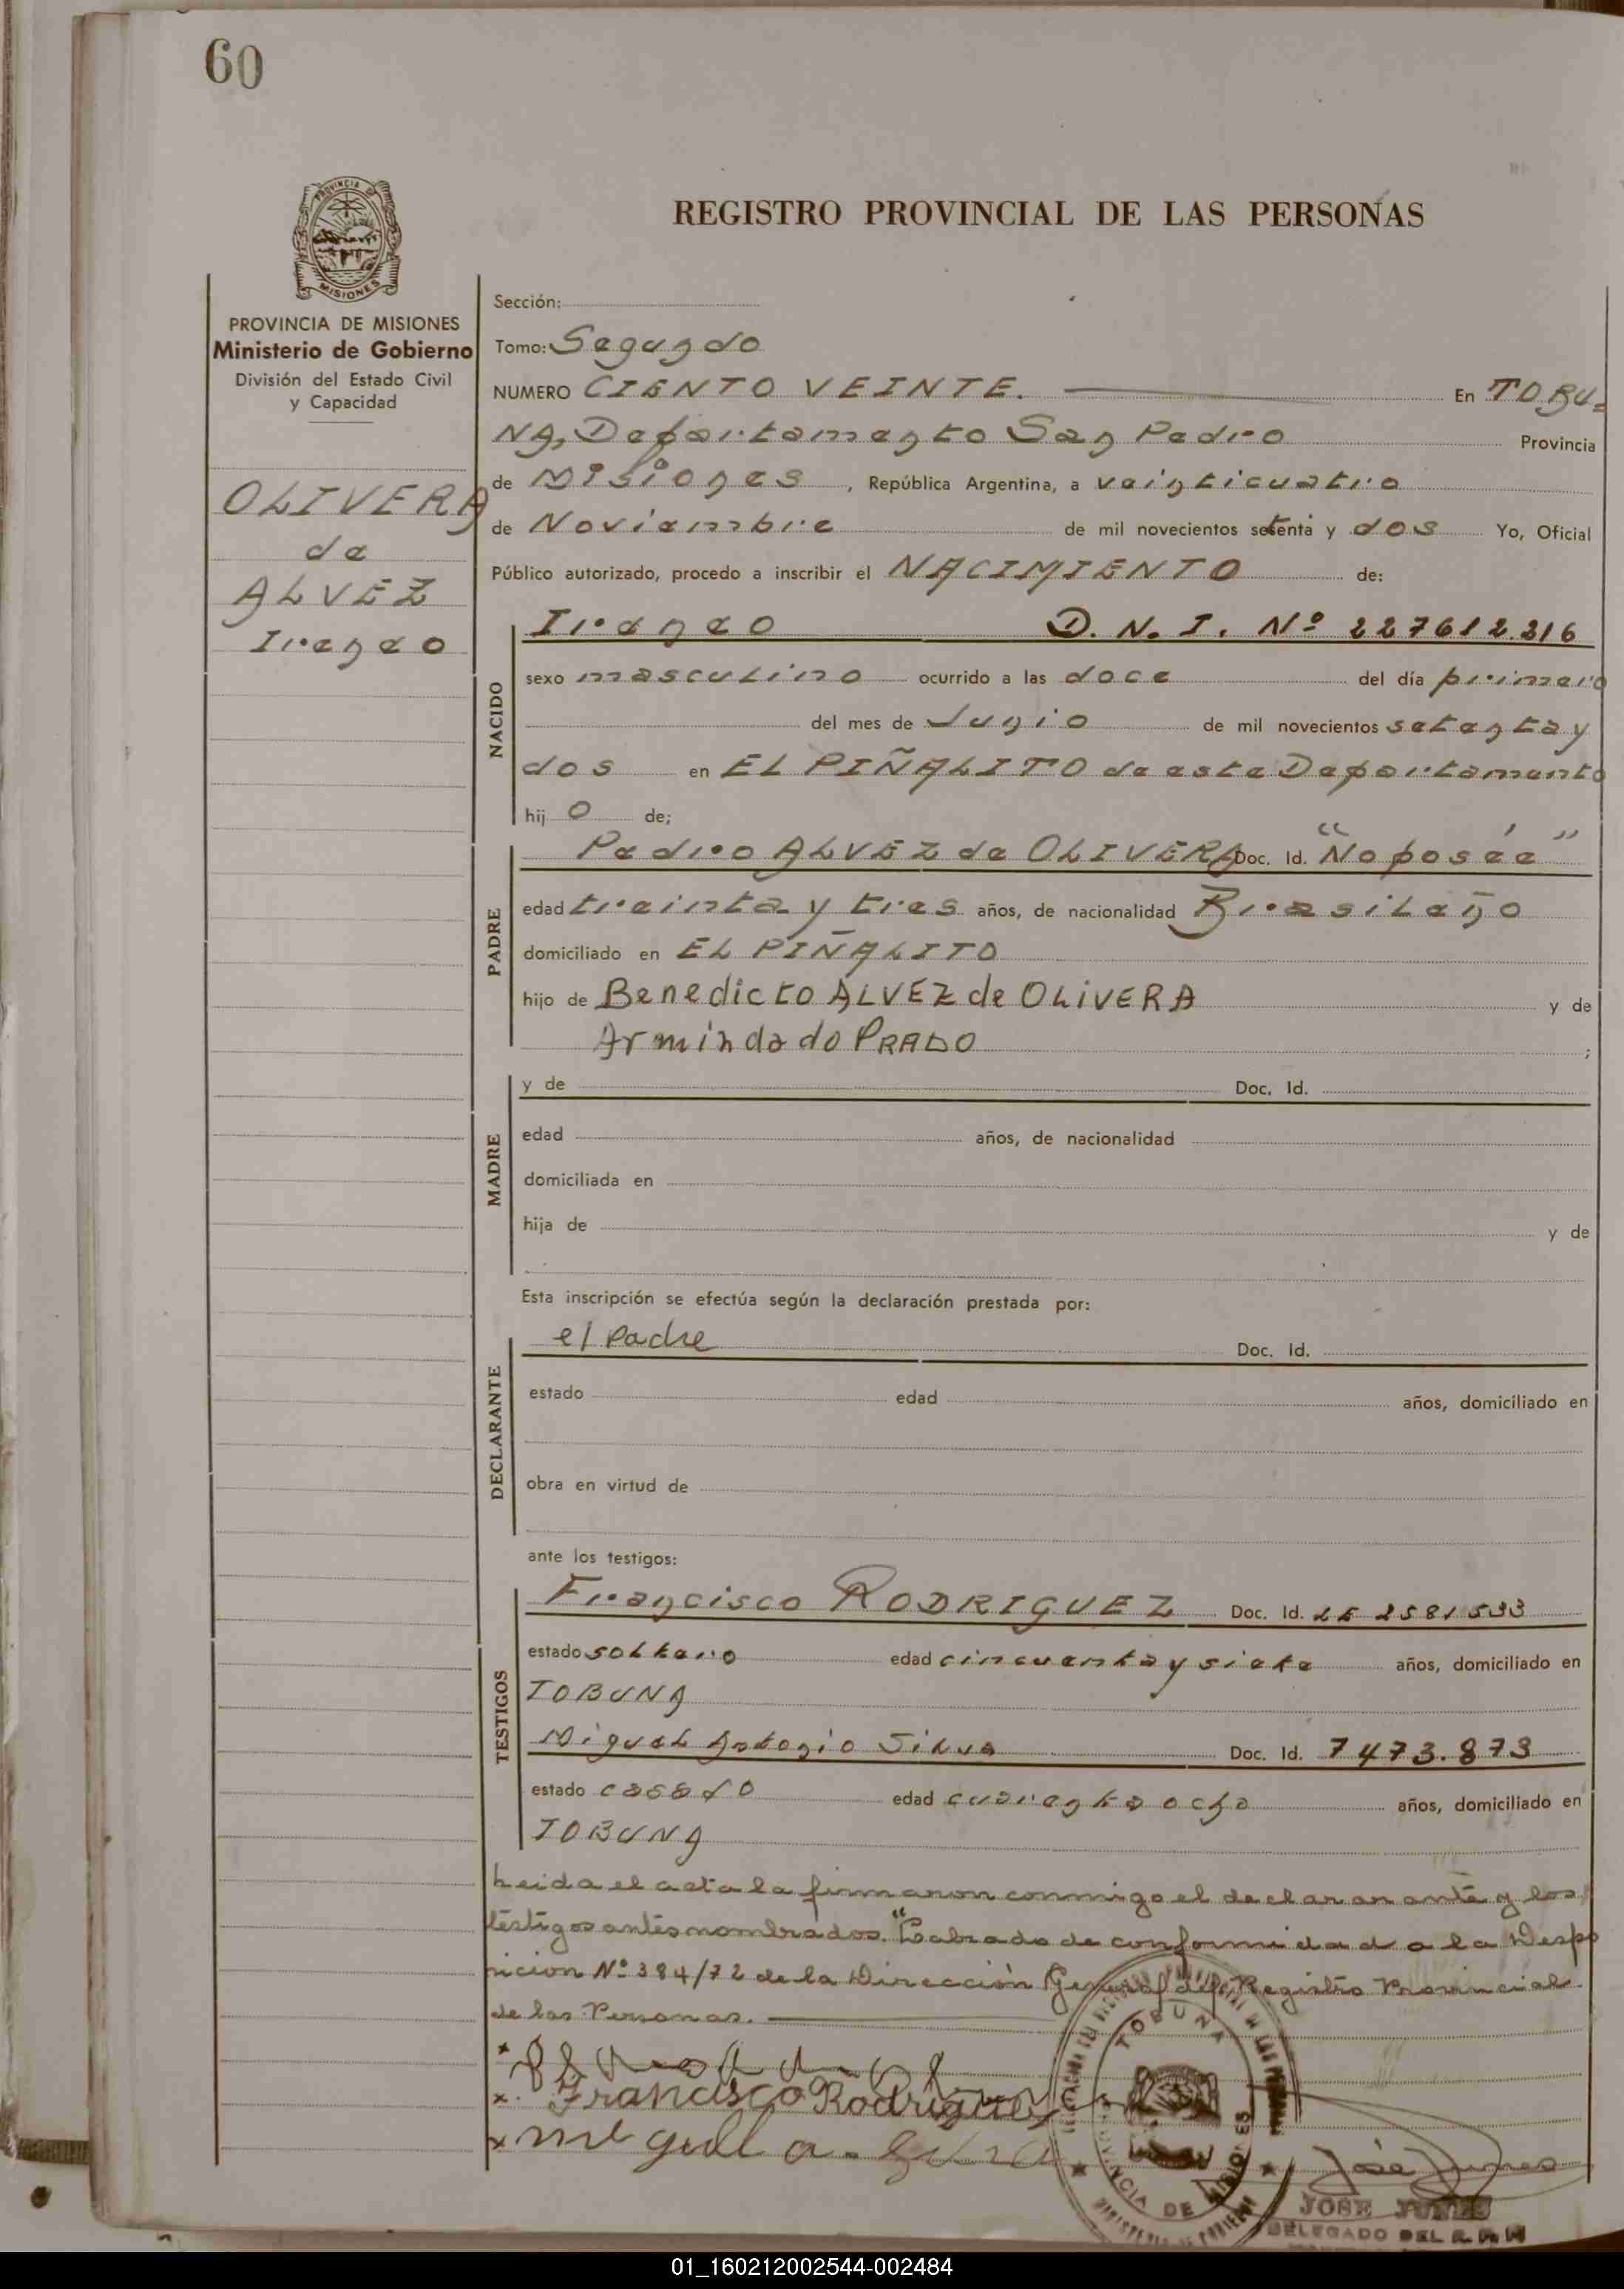 60
PROVINCIA DE
MISIONES
REGISTRO PROVINCIAL DE LAS PERSONAS
PROVINCIA DE MISIONES
Ministerio de Gobierno
División del Estado Civil
y Capacidad
OLIVERA
de
ALVEZ
Ireneo
Sección:
Tomo: Segundo
NUMERO CIENTO VEINTE. En TOBU=
NA, Departamento San Pedro Provincia
de Misiones, República Argentina, a veinticuatro
de Noviembre de mil novecientos setenta y dos Yo, Oficial
Público autorizado, procedo a inscribir el NACIMIENTO de:
NACIDO
Ireneo D. N. I. Nº 227612.216
sexo masculino ocurrido a las doce del día primero
del mes de Junio de mil novecientos setenta y
dos en EL PIÑALITO de este Departamento
hijo de;
PADRE
Pedro ALVEZ de OLIVERA Doc. Id. "No posée"
edad treinta y tres años, de nacionalidad Brasileño
domiciliado en EL PIÑALITO
hijo de Benedicto ALVEZ de OLIVERA y de
Arminda do PRADO ;
MADRE
y de Doc. Id.
edad años, de nacionalidad
domiciliada en
hija de y de
Esta inscripción se efectúa según la declaración prestada por:
DECLARANTE
el Padre Doc. Id.
estado edad años, domiciliado en
obra en virtud de
ante los testigos:
TESTIGOS
Francisco RODRIGUEZ Doc. Id. LE 2581533
estado soltero edad cincuenta y siete años, domiciliado en
TOBUNA
Miguel Antonio Silva Doc. Id. 7473.873
estado casado edad cuarenta ocho años, domiciliado en
TOBUNA
Leida el acta la firmaron conmigo el declaranante y los
testigos antes nombrados. "Labrado de conformidad a la Dispo
sicion Nº 384/72 de la Dirección General del Registro Provincial
de las Personas.
x
x. Francisco Rodriguez
x miguel a. Silva
TOBUNA
PROVINCIA DE MISIONES
José Junes
JOSE JUNES
DELEGADO DEL R.
01_160212002544-002484